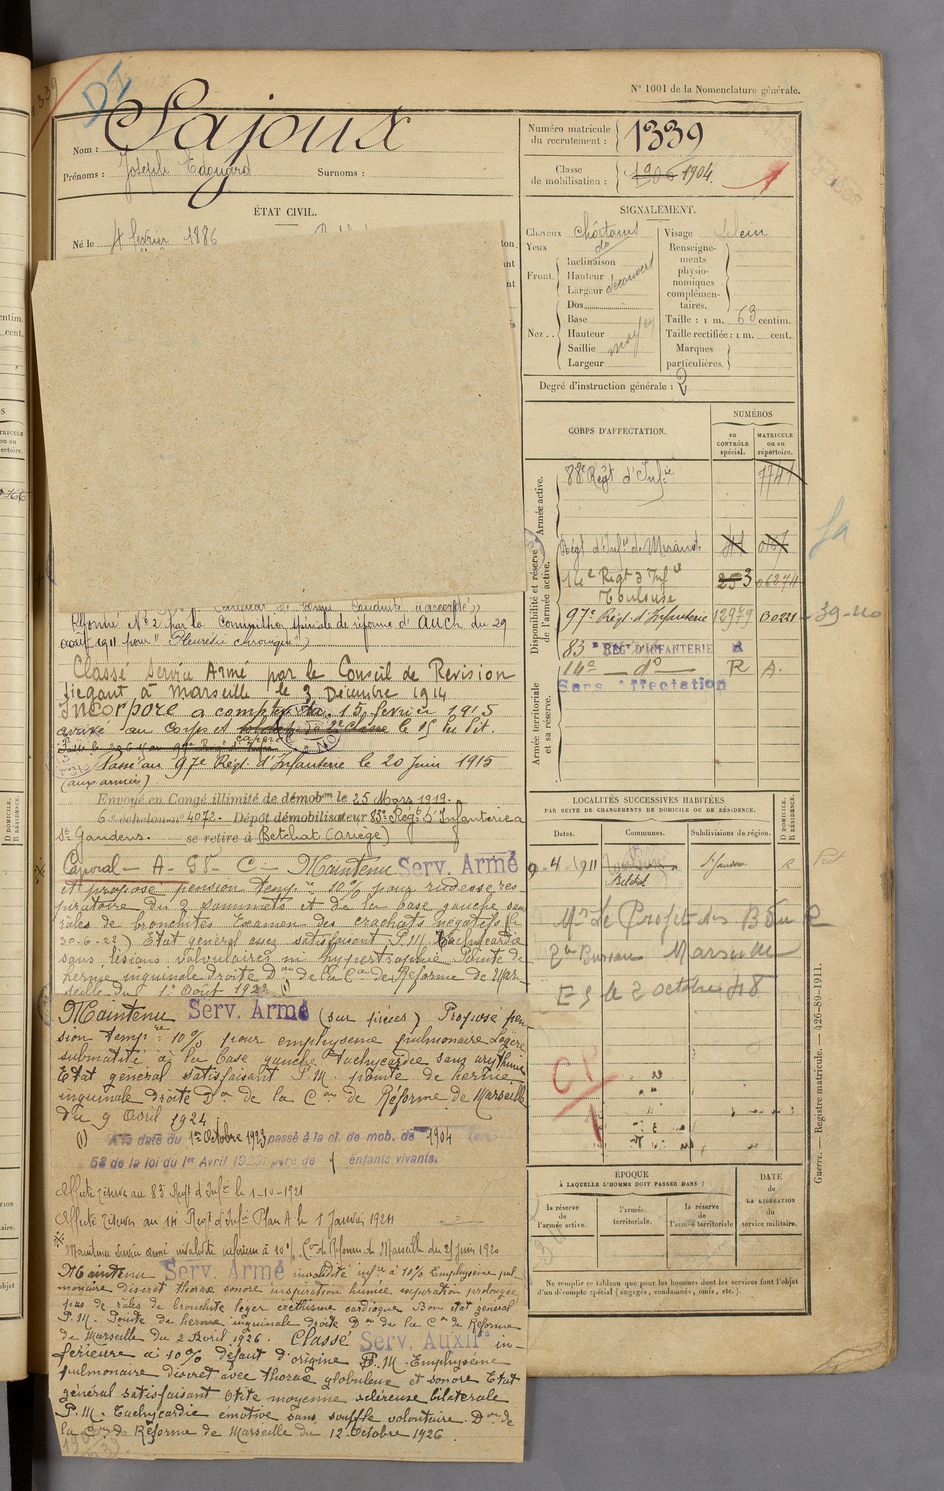 N° 1001 de la Nomenclature générale.
D I
Nom : Sajoux
Prénoms : Joseph Edouard Surnoms :
Numéro matricule du recrutement : 1339
Classe de mobilisation : 1906 1904
ÉTAT CIVIL.
Né le 4 février 1886
SIGNALEMENT.
Cheveux châtains
Yeux do
Front. Inclinaison
Hauteur
Largeur découvert
Nez.. Dos
Base
Hauteur
Saillie moyen
Largeur
Visage plein
Renseignements physionomiques complémentaires.
Taille : 1 m. 63 centim.
Taille rectifiée : 1 m. cent.
Marques particulières.
Degré d'instruction générale : 2
CORPS D'AFFECTATION.
NUMÉROS
au CONTRÔLE spécial.
MATRICULE ou au répertoire.
Armée active.
88e Régt d'Infie 7741
Disponibilité et réserve de l'armée active.
Régt d'Infie de Mirande
14e Régt d'Infie Toulouse 253 06274
97e Rég. d'Infanterie 12979 B0221 - 39-210
83 e REGt D'INFANTERIE R
14e do R A.
Sans affectation
Armée territoriale et sa réserve.
Réformé N° 2 par la Commission spéciale de réforme d'Auch du 29
août 1911 pour "Pleurésie chronique"
Classé Service Armé par le Conseil de Revision
siégant à Marseille le 3 Décembre 1914
Incorporé à compter du 15 février 1915
arrivé au corps et soldat de 2e classe le 15 du dit.
caporal
Passé au 97e Régt d'Infanterie le 20 Juin 1915
(aux armées)
Envoyé en Congé illimité de démobon le 25 Mars 1919.
6e échelon no 4072. Dépôt démobilisateur 83e Régt d'Infanterie à
St Gaudens. se retire à Betchat (Ariège)
Caporal - A - Maintenu Serv. Armé
et propose pension tempre 10% pour rudesse res-
piratoire des 2 sommets et de la base gauche sans
râles de bronchites Examen des crachats négatifs (le
30.6.22) Etat général assez satisfaisant P.M. Tachycardie
sans lésions valvulaires ni hypertrophie Pointe de
hernie inguinale droite Don de la Con de Réforme de Mar-
seille du 1er Août 1922 (1)
Maintenu Serv. Armé (sur pièces) Propose pen-
sion tempre 10% pour emphysème pulmonaire Légère
submatité à la base gauche Tachycardie sans arythmie
Etat général satisfaisant P.M. pointe de hernie
inguinale droite Don de la Con de Réforme de Marseille
du 9 Avril 1924
(1) A la date du 1er Octobre 1923 passé à la cl. de mob. de 1904 (art.
58 de la loi du 1er Avril 1923) père de 1 enfants vivants.
Affecté réserve au 83 Regt d'Infie le 1-10-1921
Affecté Réserve au 14 Regt d'Infie Plan A le 1 Janvier 1924
Maintenu Service armé invalidité inférieure à 10% Con de Réforme de Marseille du 25 juin 1920
Maintenu Serv. Armé invalidité infre à 10% Emphysème pul-
monaire discret thorax sonore inspiration humée expiration prolongée
pas de râles de bronchite léger éréthisme cardiaque Bon état général
P.M. Pointe de hernie inguinale droite Don de la Con de Réforme
de Marseille du 2 Avril 1926. Classé Serv. Auxil in-
férieure à 10% défaut d'origine P.M. Emphysème
pulmonaire discret avec thorax globuleux et sonore Etat
général satisfaisant Otite moyenne scléreuse bilatérale
P.M. Tachycardie émotive sans souffle Don de
la Con de Réforme de Marseille du 12 Octobre 1926.
LOCALITÉS SUCCESSIVES HABITÉES
PAR SUITE DE CHANGEMENTS DE DOMICILE OU DE RÉSIDENCE.
Dates. Communes. Subdivisions de région. D DOMICILE. R RÉSIDENCE.
9-4-1911 St Gaudens R
Mr Le Préfet des B du R
2e Bureau Marseille
ES le 2 octobre 48
CP
1
ÉPOQUE
À LAQUELLE L'HOMME DOIT PASSER DANS :
la réserve de l'armée active.
l'armée territoriale.
la réserve de l'armée territoriale
DATE de LA LIBÉRATION du service militaire.
Ne remplir ce tableau que pour les hommes dont les services font l'objet
d'un décompte spécial (engagés, condamnés, omis, etc.).
Guerre. — Registre matricule. — 426-89-1911.